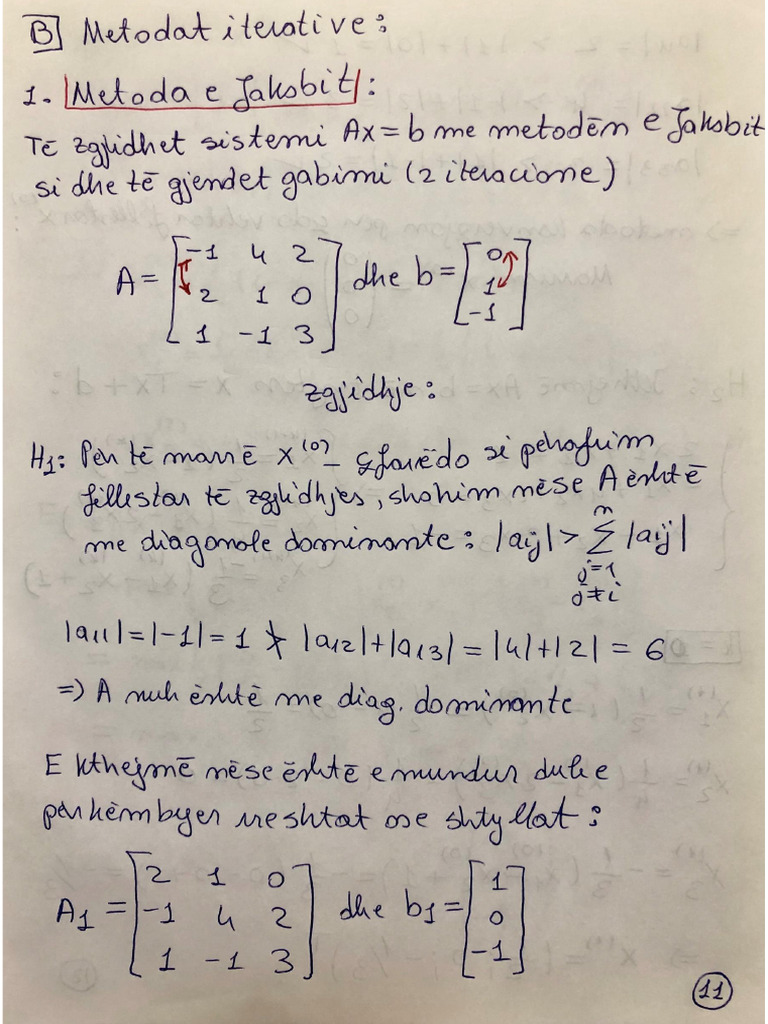 B Metodat iterative:
1. Metoda e Jakobit:
Të zgjidhet sistemi Ax=b me metodën e Jakobit
si dhe të gjendet gabimi (2 iteracione)
A = [-1 4 2
2 1 0
1 -1 3] dhe b = [0
1
-1]
zgjidhje:
H₁: Për të marrë x⁽⁰⁾- çfarëdo si përafrim
fillestar të zgjidhjes, shohim nëse A është
me diagonale dominante: |aij| > Σ |aij|
n
j=1
j≠i
|a11|=|-1|=1 ≯ |a12|+|a13|=|4|+|2|=6
=> A nuk është me diag. dominante
E kthejmë nëse është e mundur duke
përkëmbyer rreshtat ose shtyllat:
A₁ = [2 1 0
-1 4 2
1 -1 3] dhe b₁ = [1
0
-1]
11